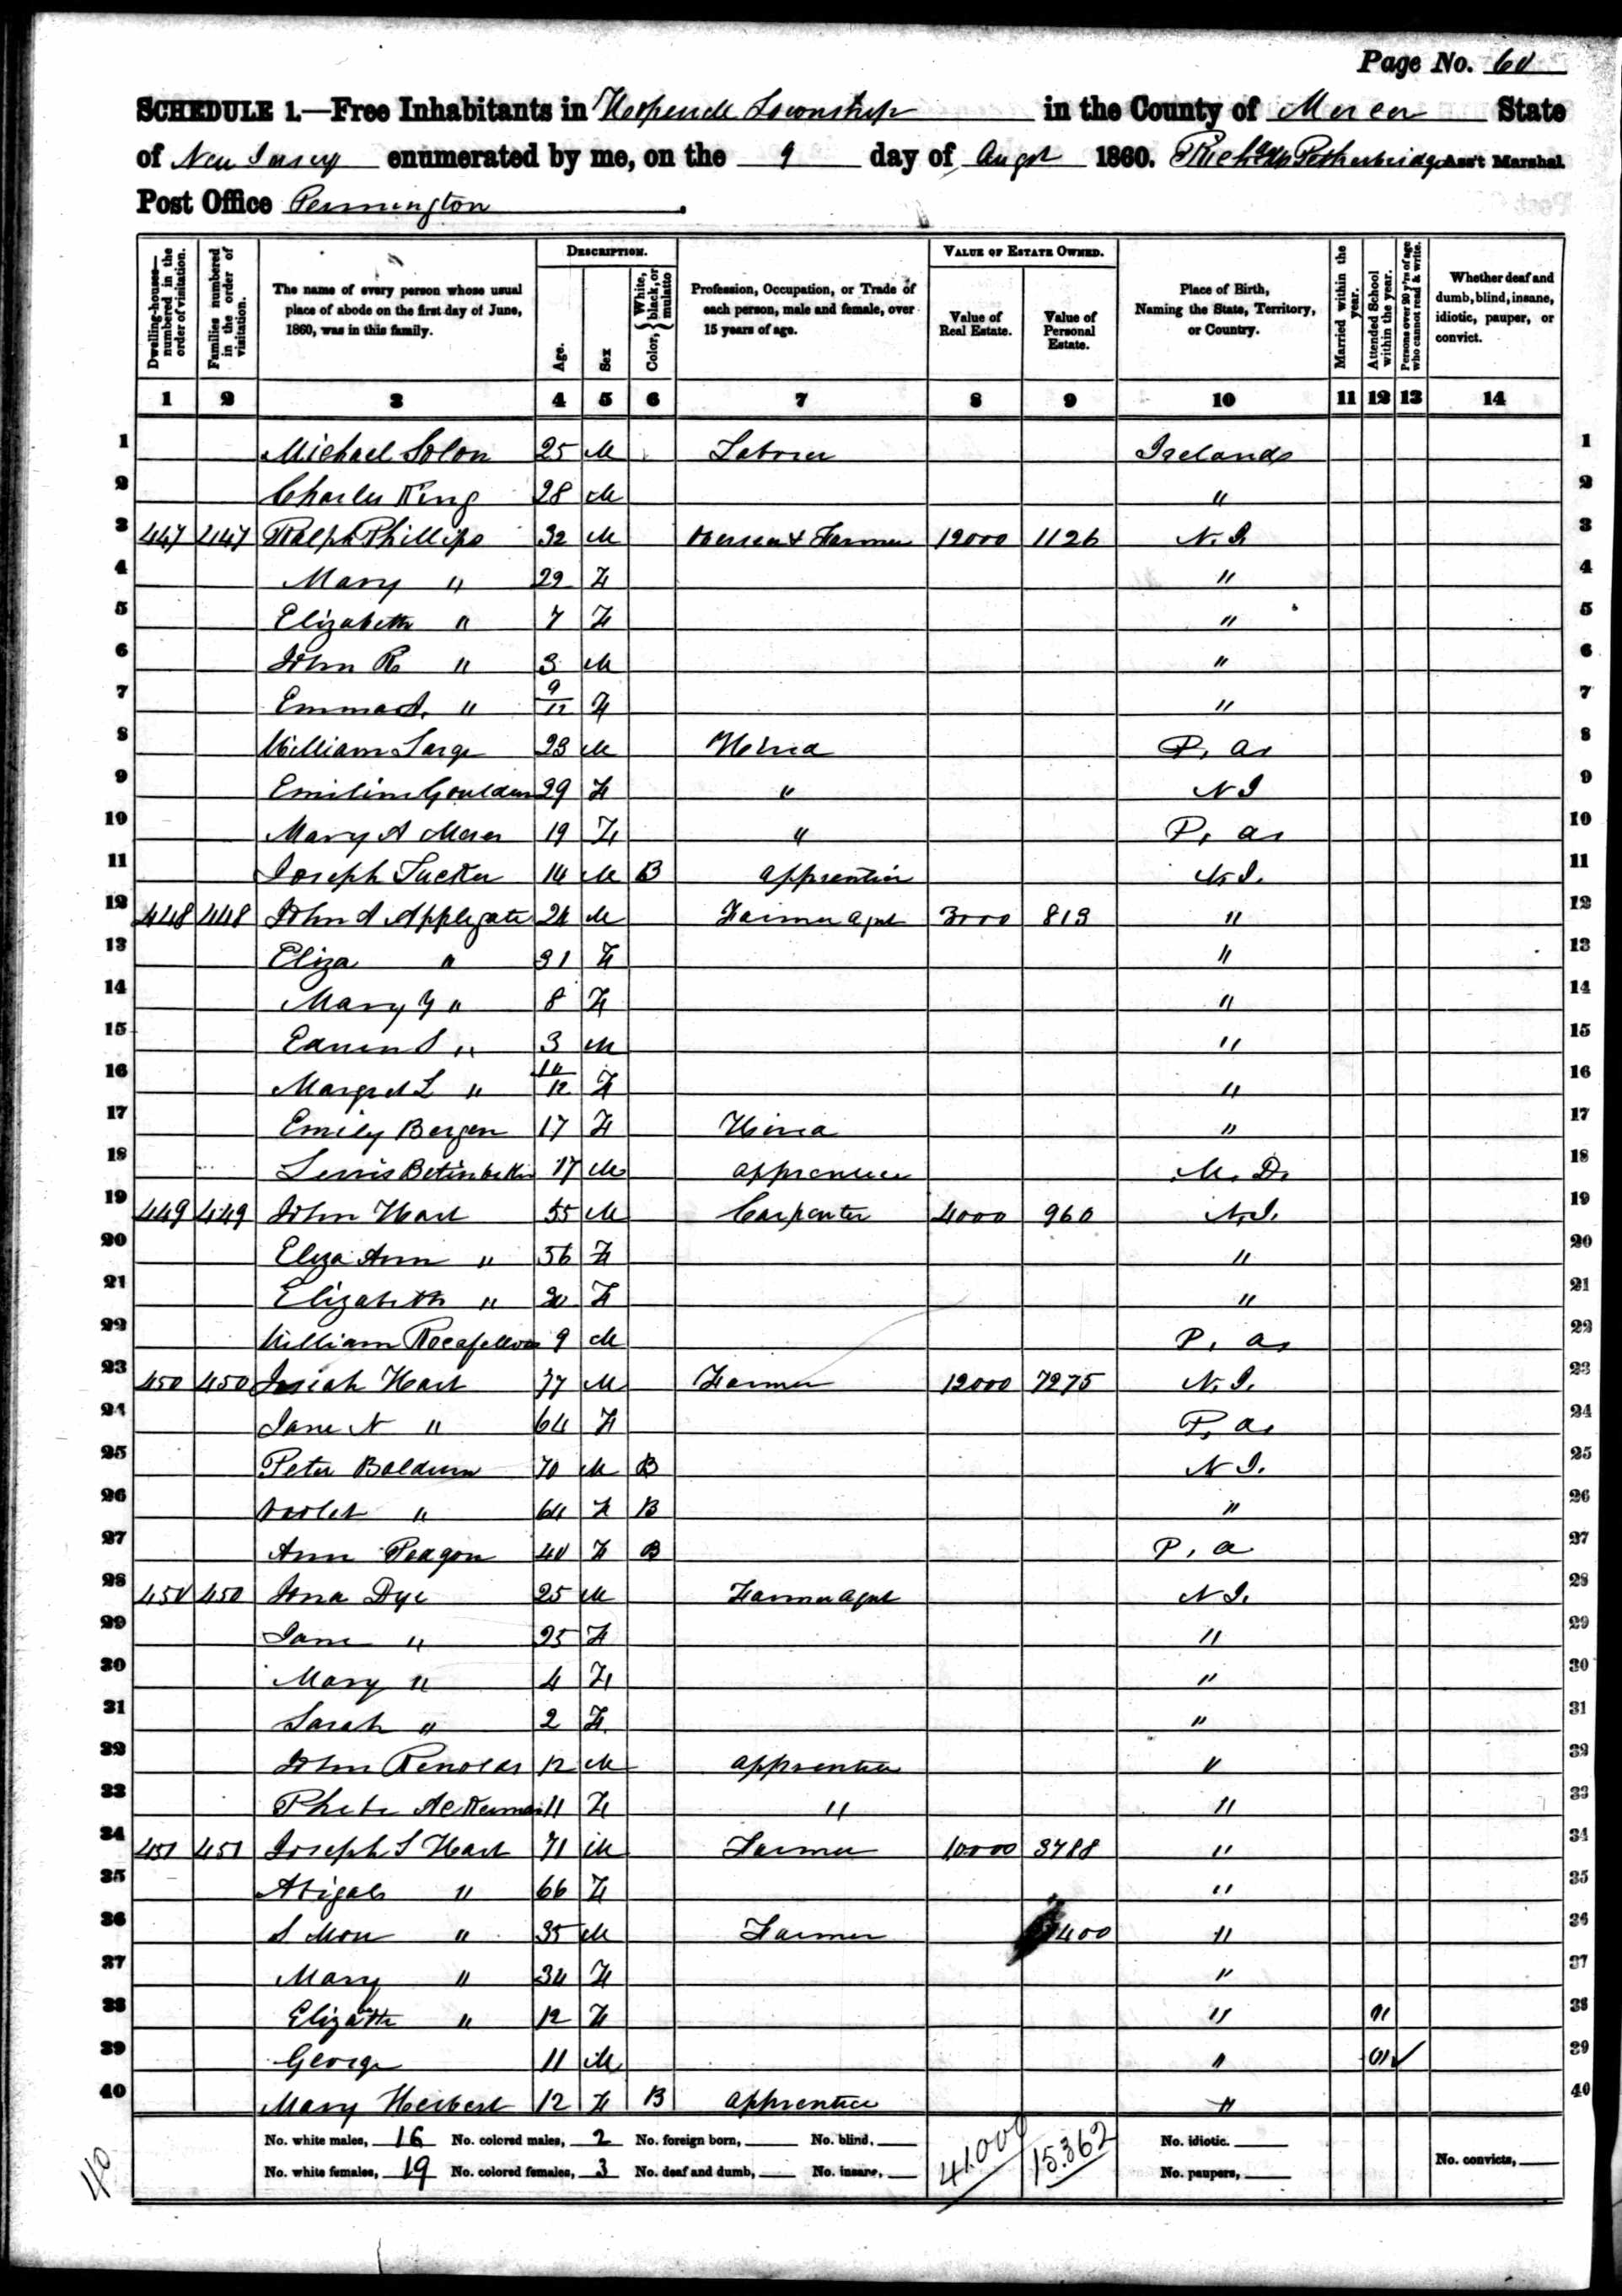 Page No. 60
SCHEDULE 1.—Free Inhabitants in Hopewell Township in the County of Mercer State
of New Jersey enumerated by me, on the 9 day of Augst 1860. Richard Petherbridge Ass't Marshal.
Post Office Pennington.
Dwelling-houses—numbered in the order of visitation. Families numbered in the order of visitation. The name of every person whose usual place of abode on the first day of June, 1860, was in this family. DESCRIPTION. Age. Sex Color, { White, black, or mulatto Profession, Occupation, or Trade of each person, male and female, over 15 years of age. VALUE OF ESTATE OWNED. Value of Real Estate. Value of Personal Estate. Place of Birth, Naming the State, Territory, or Country. Married within the year. Attended School within the year. Persons over 20 y'rs of age who cannot read & write. Whether deaf and dumb, blind, insane, idiotic, pauper, or convict.
1 2 3 4 5 6 7 8 9 10 11 12 13 14
1 Michael Solon 25 M Laborer Ireland 1
2 Charles King 28 M " 2
3 447 447 Ralph Phillips 32 M & Farmer 12000 1126 N.J. 3
4 Mary " 29 F " 4
5 Elizabeth " 7 F " 5
6 John R " 3 M " 6
7 Emma A. " 9/12 F " 7
8 William Large 23 M Hired P. a. 8
9 Emiline Goulden 29 F " N J 9
10 Mary A Moser 19 F " P. a. 10
11 Joseph Tucker 14 M B apprentice N.J. 11
12 448 448 John A Applegate 26 M Farmer Agnt 3000 813 " 12
13 Eliza " 31 F " 13
14 Mary Y " 8 F " 14
15 Edwin S " 3 M " 15
16 Margret L " 10/12 F " 16
17 Emily Bergen 17 F Hired " 17
18 Lewis 17 M apprentice M. D. 18
19 449 449 John Hart 55 M Carpenter 4000 960 N.J. 19
20 Eliza Ann " 56 F " 20
21 Elizabeth " 30 F " 21
22 William Rocafellow 9 M P. a. 22
23 450 450 Josiah Hart 77 M Farmer 12000 7275 N.J. 23
24 Jane N " 64 F P. a. 24
25 Peter Baldwin 70 M B N J. 25
26 Violet " 64 F B " 26
27 Ann Peagon 40 F B P. a 27
28 450 450 Ira Dye 25 M Farmer Agnt N J. 28
29 Jane " 25 F " 29
30 Mary " 4 F " 30
31 Sarah " 2 F " 31
32 John Renolds 12 M apprentice " 32
33 Phebe Ackerman 11 F " " 33
34 451 451 Joseph S Hart 71 M Farmer 10000 3788 " 34
35 Abigal " 66 F " 35
36 S Mon " 35 M Farmer 1400 " 36
37 Mary " 34 F " 37
38 Elizabeth " 12 F " " 38
39 George 11 M " " ✓ 39
40 Mary Herbert 12 F B apprentice " 40
No. white males, 16 No. colored males, 2 No. foreign born, No. blind, 41.000 15.362 No. idiotic.
No. white females, 19 No. colored females, 3 No. deaf and dumb, No. insane, No. paupers, No. convicts,
40